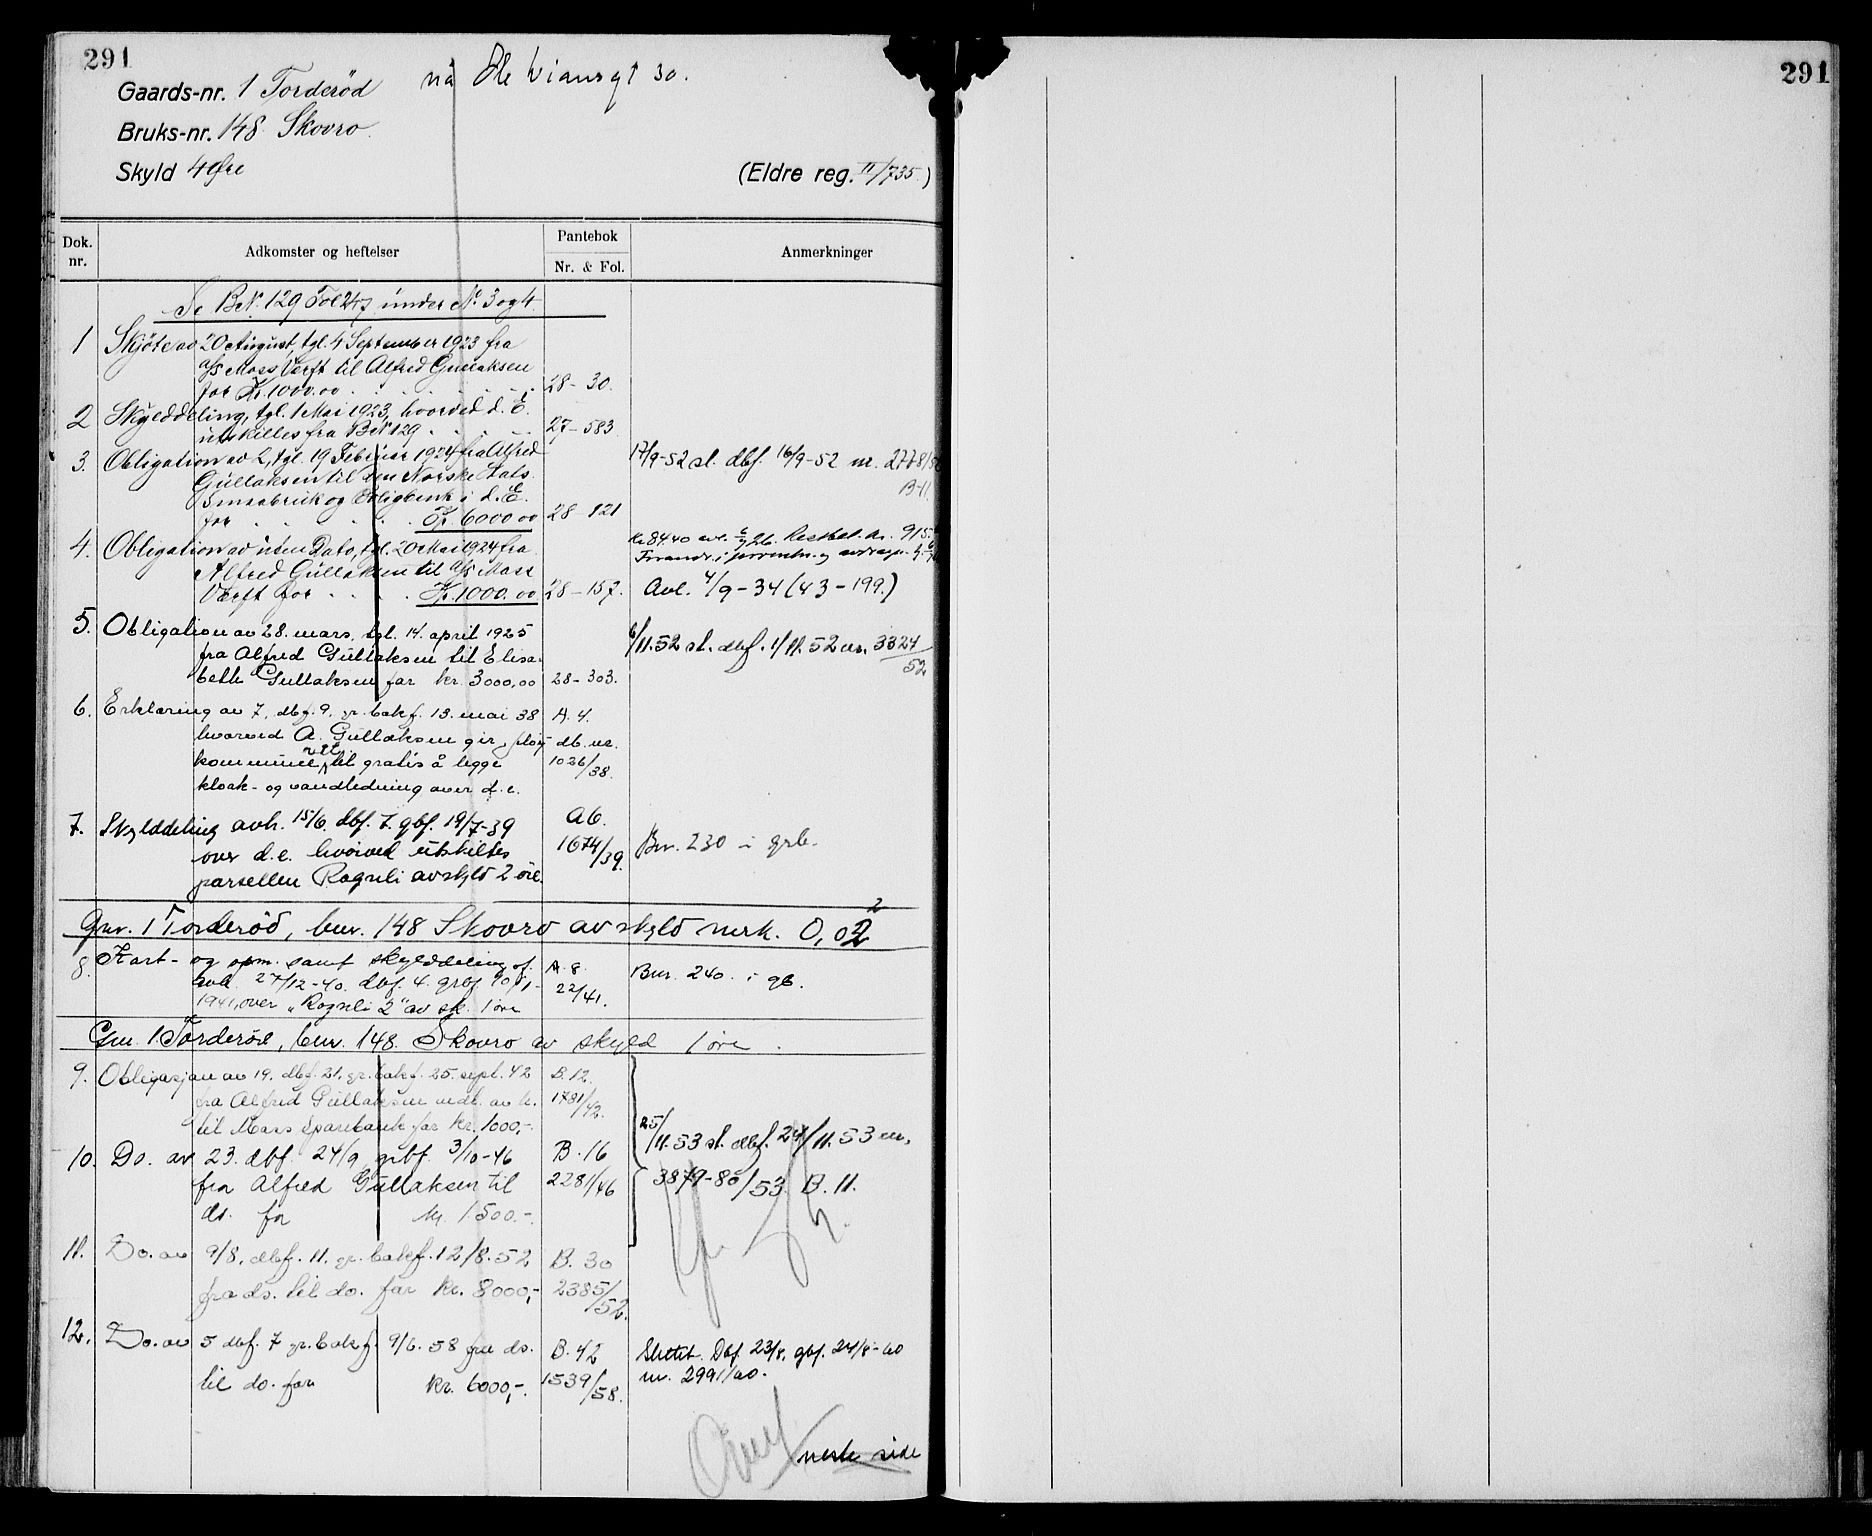 291
291
Gaards-nr. 1 Torderød nå Ole Viansgt 30.
Bruks-nr. 148 Skovro.
Skyld 4 Øre
(Eldre reg. II/735.)
Dok. nr.
Adkomster og heftelser
Pantebok
Nr. & Fol.
Anmerkninger
Se BN. 129 Fol 247 under N. 3 og 4.
1 Skjöte av 20 August, tgl. 4 September 1923 fra
A/S Moss Verft til Alfred Gullaksen
for Kr. 1000.00 28 - 30.
2 Skylddeling, tgl. 1 Mai 1923, hvorved d. E.
utskilles fra BN 129 27 - 583
3. Obligation av 2, tgl. 19 Februar 1924 fra Alfred
Gullaksen til den Norske Stats
Smaabruk og Boligbank i d. E.
for Kr. 6000 00 28 - 121
17/9-52 sl. dbf. 16/9-52 nr. 2778/52
B-11.
4. Obligation av uten Dato, tgl. 20 Mai 1924 fra
Alfred Gullaksen til A/S Moss
Værft for Kr. 1000.00 28 - 157.
Kr 84.40 avl. 26. Restbet. kr. 915.
Avl. 4/9 - 34 (43 - 199.)
5. Obligation av 28. mars, tgl. 14. april 1925
fra Alfred Gullaksen til Elisa-
beth Gullaksen for kr. 3000,00 28 - 303.
6/11.52 sl. dbf. 1/11.52 nr. 3324/52
6. Erklæring av 7, dbf. 9. gr. bokf. 13. mai 38 A. 4.
hvorved A. Gullaksen gir Jeløy db. nr.
kommune rett til gratis å legge 1026/38.
kloak- og vandledning over d. e.
7. Skylddeling avh. 15/6. dbf. 7. gbf. 19/7-39 A6.
over d.e. hvorved utskiltes 1674/39.
parsellen Rognli av skyld 2 øre.
Bnr. 230 i grb.
Gnr. 1 Torderød, bnr. 148 Skovro av skyld mrk. 0,02
2
8. Kart- og opm. samt skylddeling sf. A. 8.
avh. 27/12-40. dbf. 4. grbf. 10/1- 22/41.
1941, over "Rognli 2" av sk. 1 øre
Bnr. 240. i gb.
Gnr. 1. Torderöd, bnr. 148. Skovro av skyld 1 øre.
9. Obligasjon av 19. dbf. 21. gr. bokf. 25. sept. 42 B. 12.
fra Alfred Gullaksen 1781/42.
til Moss Sparebank for kr. 1000,-
10. Do. av 23. dbf. 24/9 grbf. 3/10-46 B. 16
fra Alfred Gullaksen til 2281/46
ds. for kr. 1500.-.
25/11.53 sl. dbf. 24/11.53 nr.
3879-80/53. B. 11.
11. Do. av 9/8, dbf. 11. gr. bokf. 12/8. 52 B. 30
fra ds. til do. for kr. 8000,- 2385/52.
12. Do. av 5 dbf. 7 gr. bokf. 9/6. 58 fra ds. B. 42
til do. for kr. 6000,-. 1539/58.
Slettet. Dbf. 23/8, gbf. 24/8-60
nr. 2991/60.
neste side